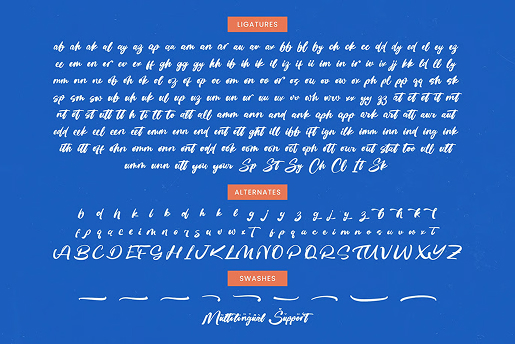 LIGATURES
ab ah ak al ay az ap aa am an ar au av ax bb bl by ch ck cc dd dy ed el ey ez
ee em en er ev ex ff gh gg gy hh ib ih ik il iz if ii im in ir iv ix jj kk ld ll ly
mm nn ne ob oh ok ol oz of op oo om on oo or os ou ov ow ox ph pl pp qq sh sk
sp sm sw ub uh uk ul up uz um un ur uu ux vv wh ww xx yy zz at et it mt
nt ot st utt tt h ti ll to att all amm ann and ank aph app ark art att aur aut
edd eek eel een eet emm enn end ent ett ght ill ibb ift ign ilk imm inn ind ing ink
ith itt off ohn omm onn ont odd ook oom oon oot oph ott our out stut too ull ult
umm unn utt you your Sp St Sy Ch Cl It Sk
ALTERNATES
b d h k l b d h k l g j y z g y j z b h k l
f p q a c e i m n o r s u v w x t f p a c e i m n o r s u v w x t
A B C D E F G H I J K L M N O P Q R S T U V W X Y Z
SWASHES
Multilingual Support